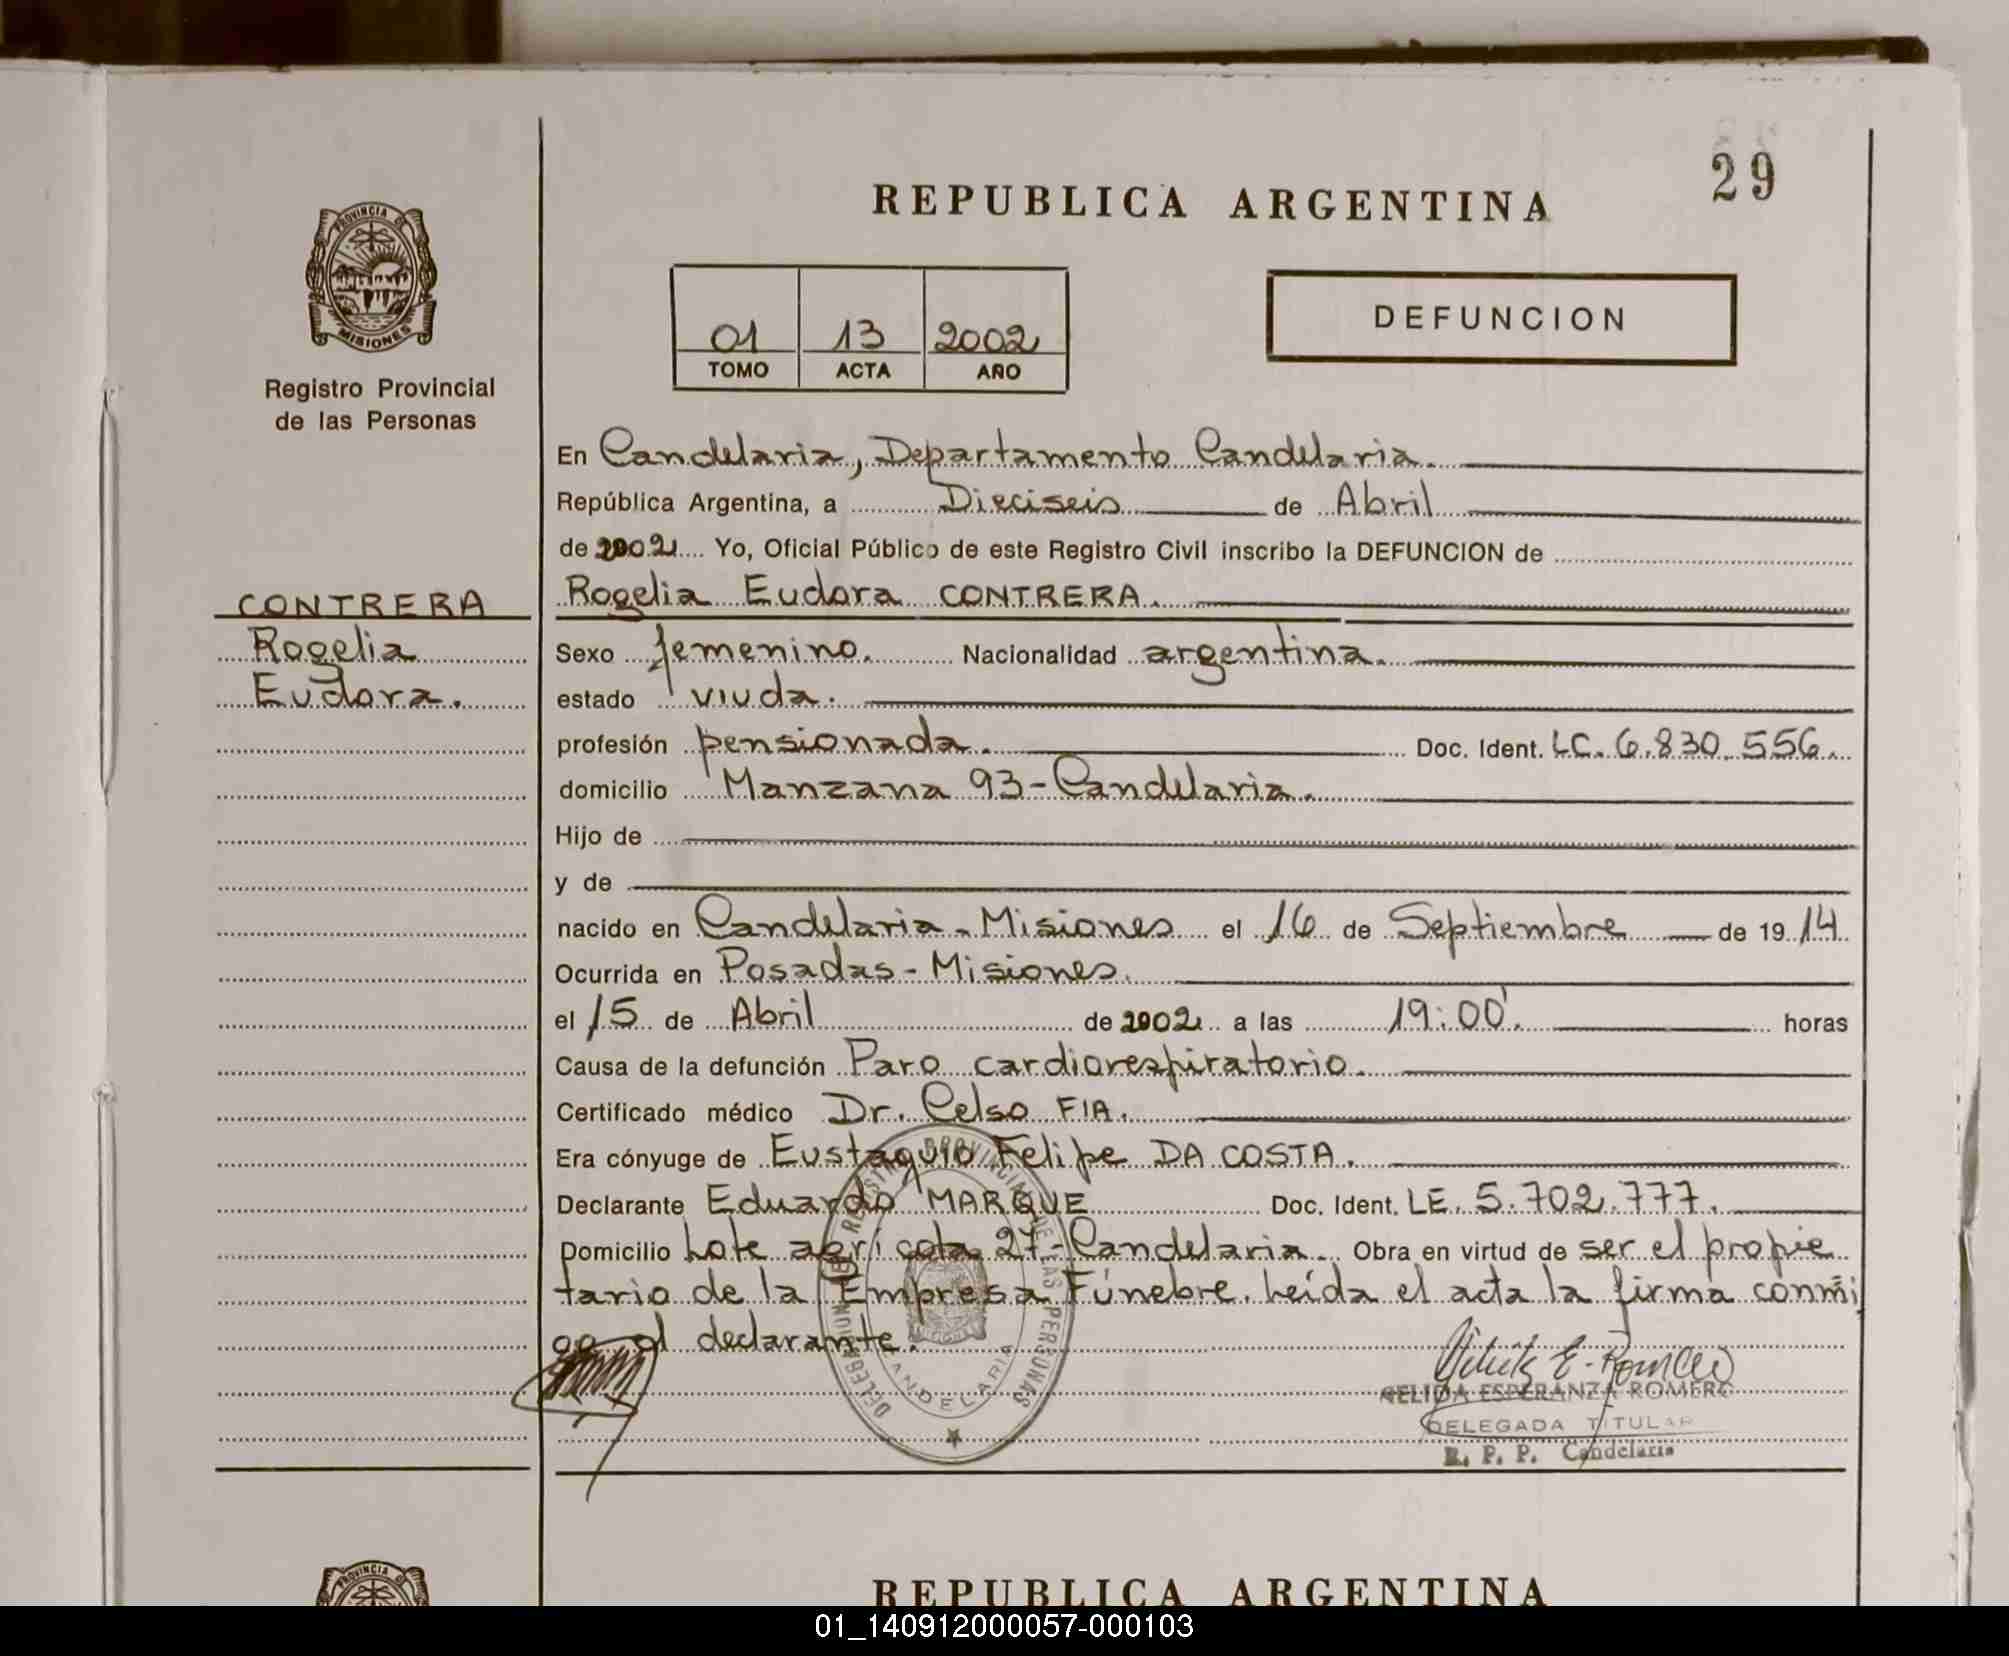 29
REPUBLICA ARGENTINA
PROVINCIA D
MISIONES
Registro Provincial
de las Personas
01 13 2002
TOMO ACTA AÑO
DEFUNCION
En Candelaria, Departamento Candelaria.
República Argentina, a Dieciseis de Abril
de 2002 Yo, Oficial Público de este Registro Civil inscribo la DEFUNCION de
CONTRERA
Rogelia
Eudora.
Rogelia Eudora CONTRERA.
Sexo femenino. Nacionalidad argentina.
estado viuda.
profesión pensionada. Doc. Ident. LC. 6.830.556.
domicilio Manzana 93-Candelaria.
Hijo de
y de
nacido en Candelaria-Misiones el 16 de Septiembre de 1914
Ocurrida en Posadas-Misiones.
el 15 de Abril de 2002 a las 19:00'. horas
Causa de la defunción Paro cardiorespiratorio.
Certificado médico Dr. Celso FIA.
Era cónyuge de Eustaquio Felipe DA COSTA.
Declarante Eduardo MARQUE Doc. Ident. LE. 5.702.777.
Domicilio Lote agrícola 27-Candelaria. Obra en virtud de ser el propie
tario de la Empresa Fúnebre. Leída el acta la firma conmi
go el declarante.
DELEGACION REGISTRO PROVINCIAL DE LAS PERSONAS
CANDELARIA
NELIDA ESPERANZA ROMERO
DELEGADA TITULAR
R. P. P. Candelaria
PROVINCIA
REPUBLICA ARGENTINA
01_140912000057-000103